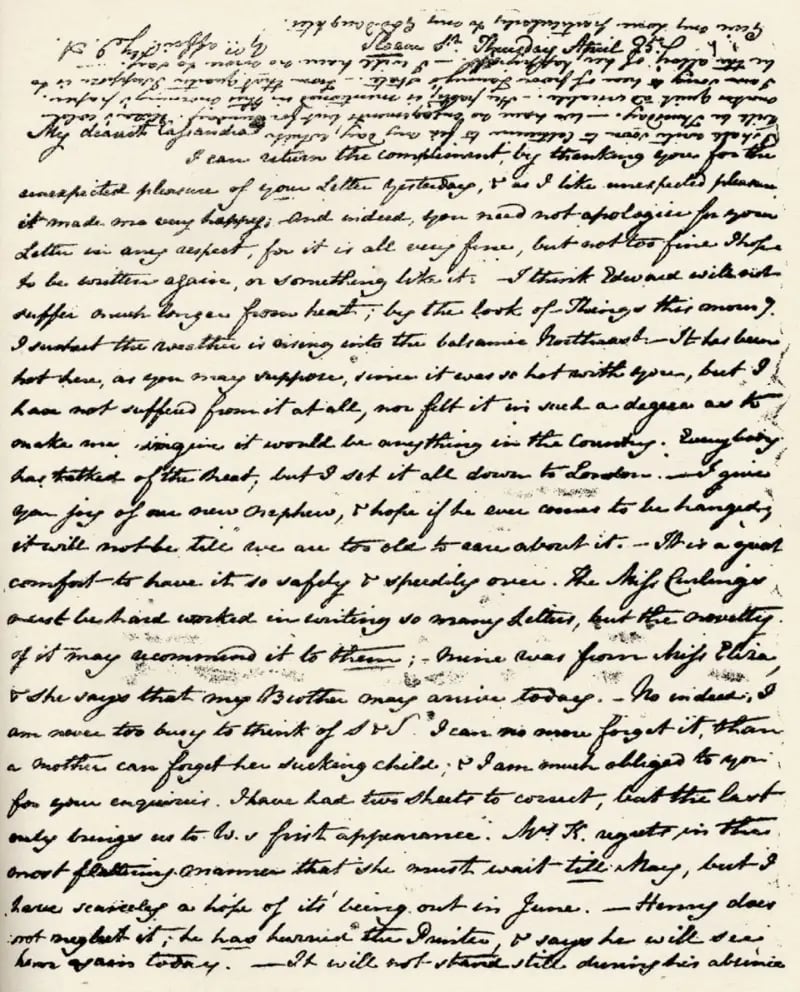 Sloane St. Thursday April 25.
My dearest Cassandra
I can return the compliment, by thanking you for the
unexpected pleasure of your Letter yesterday, & as I like unexpected pleasure
it made me very happy; And indeed, you need not apologise for your
Letter in any respect, for it is all very fine, but not too fine I hope
to be written again, or something like it. — I think Edward will not
suffer much longer from heat; by the look of Things this morng.
I suspect the weather is rising into the balsamic Northeast. — It has been
hot here, as you may suppose, since it was so hot with you, but I
have not suffered from it at all, nor felt it in such a degree as to
make me imagine it would be anything in the Country. Everybody
has talked of the heat, but I set it all down to London. — I give
you joy of our new nephew, & hope if he ever comes to be hanged,
it will not be till we are too old to care about it. — It is a great
comfort to have it so safely & speedily over. The Miss Curlings
must be hard worked in writing so many Letters, but the novelty
of it may recommend it to them; — mine was from Miss Eliza,
& she says that my Brother may arrive today. — No indeed, I
am never too busy to think of S & S. I can no more forget it, than
a mother can forget her sucking child; & I am much obliged to you
for your enquiries. I have had two sheets to correct, but the last
only brings us to W.s first appearance. Mrs K. regrets in the
most flattering manner that she must wait till May, but I
have scarcely a hope of its being out in June. — Henry does
not neglect it; he has hurried the Printer, & says he will see
him again today. — It will not stand still during his absence
I shall write soon to Catherine to fix my day, which
will be Thursday. — We have no engagements but for Sunday. Eliza's cold
makes quiet adviseable. — Her party is mentioned in this morning's paper. —
I am sorry to hear of poor Fanny's state. — From that quarter I suppose is to
be the alloy of her happiness. — I will have no more to say. —
Yrs affecly J. A.
Give my Love particularly to my God-Daughter.